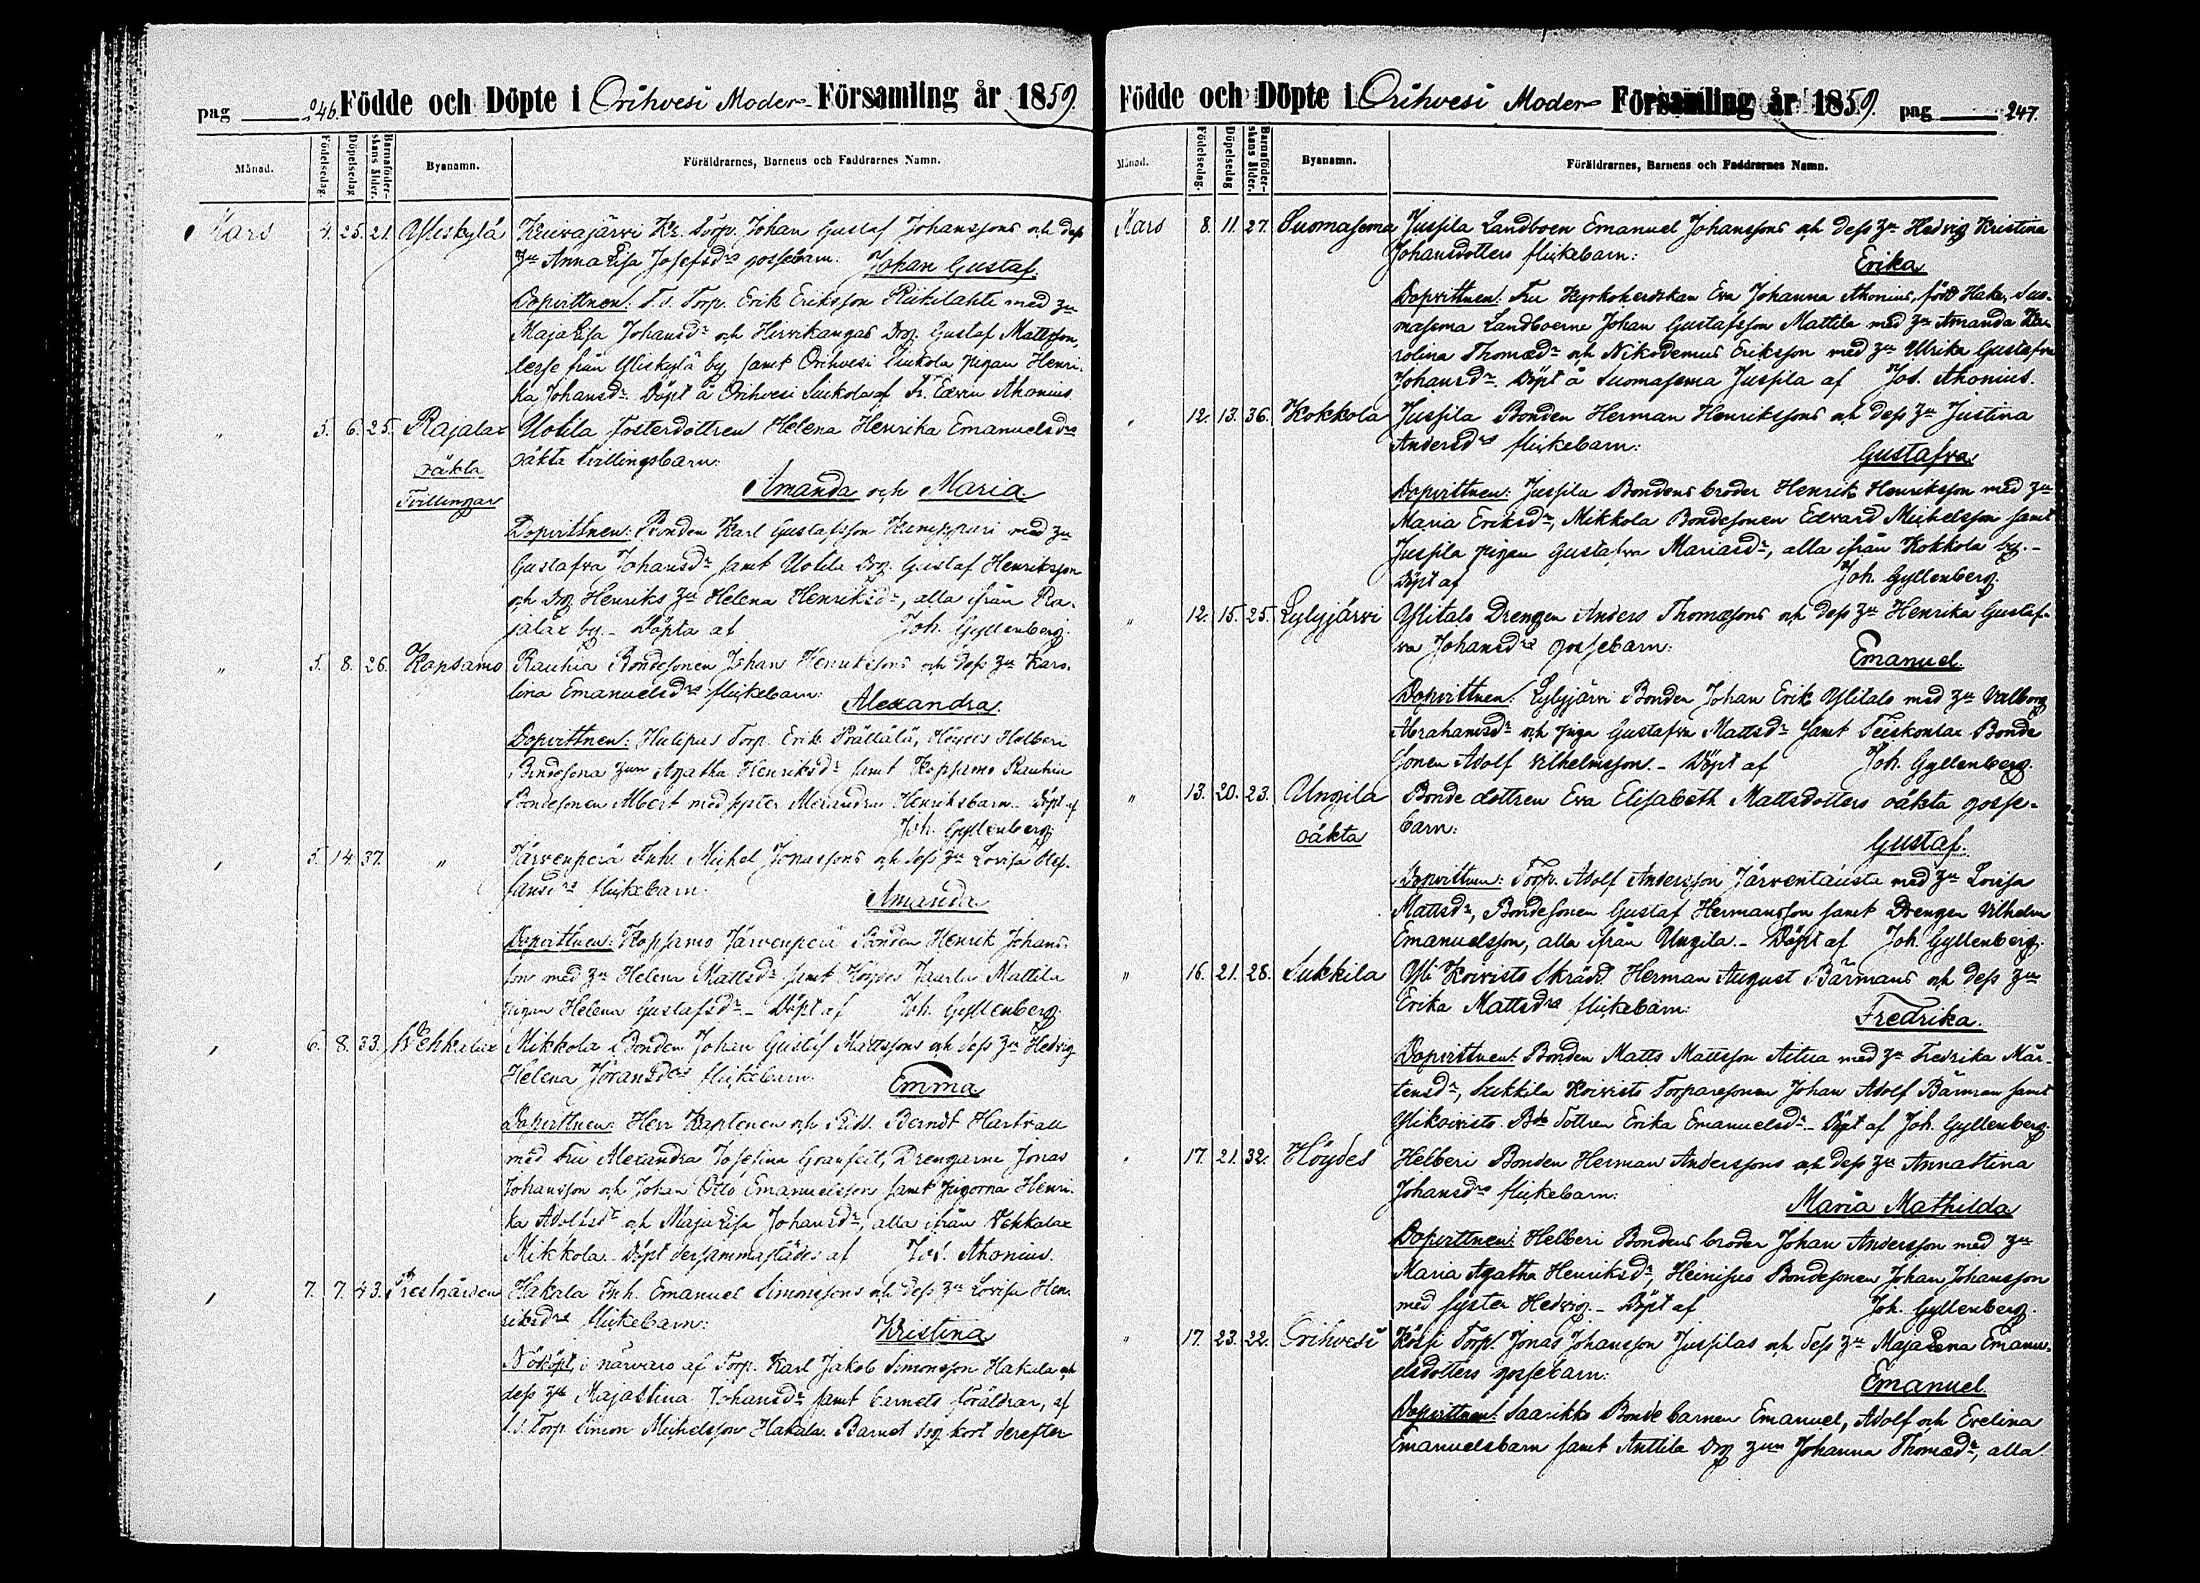 pag 246. Födde och Döpte i Orihvesi Moder- Församling år 1859.
Månad. Födelsedag. Döpelsedag Barnaföderskans ålder. Byanamn. Föräldrarnes, Barnens och Faddrarnes Namn.
Mars 4. 25. 21. Yliskylä Kuivajärvi Kr. Torp. Johan Gustaf Johanssons och dess
hu Anna Lisa Josefsdrs gossebarn. Johan Gustaf.
Dopvittnen: Torp. Erik Eriksson Riikilahti med hu
Maja Lisa Johansdr och Hirvikangas Drg. Gustaf Mattsson,
från Yliskylä by samt Orihvesi Liukola pigan Henri-
ka Johansdr. Döpt å Orihvesi af Edvin Ahonius
" 5. 6. 25. Rajalax Uotila fosterdottren Helena Henrika Emanuelsdrs
oäkta oäkta tvillingsbarn:
Tvillingar Amanda och Maria.
Dopvittnen: Bonden Karl Gustafsson Kumppari med hu
Gustafva Johansdr samt Uotila Drg. Gustaf Henriksson
och Drg Henriks hu Helena Henriksdr, alla ifrån Ra-
jalax by. - Döpta af Joh. Gyllenberg.
" 5. 8. 26. Kopsamo Rauhia Bondesonen Johan Henrikssons och dess hu Karo-
lina Emanuelsdrs flickebarn: Alexandra.
Dopvittnen: Torp. Erik Prättälä, Höydes Helberi
Bondesona hun Agatha Henriksdr samt Kopsamo Rauhia
Bondesonen Albert med syster Alexandra Henriksbarn - Döpt af
Joh. Gyllenberg.
" 5. 14. 37. " Järvenperä Inh. Michel Jonassons och dess hu Lovisa
flickebarn: Amanda
Dopvittnen: Kopsamo Järvenperä Bonden Henrik Johans-
son med hu Helena Mattsdr samt Höydes Jaarla Mattila
pigan Helena Gustafsdr - Döpt af Joh. Gyllenberg.
" 6. 8. 33. Wehkalax Mikkola Bonden Johan Gustaf Mattssons och dess hu Hedvig
Helena Jöransdrs flickebarn: Emma
Dopvittnen: Herr Kaptenen och Ridd. Berndt Hartvall
med Fru Alexandra Josefina Granfelt, Drengarna Jonas
Johansson och Johan Otto Emanuelsson samt pigorna Henri-
ka Adolfsdr och Maja Lisa Johansdr, alla ifrån Vehkalax
Mikkola. Döpt dersammastädes af Jos. Ahonius.
" 7. 7. 43. Prestgården Hakala Inh. Emanuel Simonssons och dess hu Lovisa Hen-
riksdrs flickebarn: Kristina
Nöddöpt, i närvaro af Torp. Karl Jakob Simonsson Hakala och
dess hu Maja Stina Johansdr samt barnets föräldrar, af
f.d. Torp. Simon Michelsson Hakala. Barnet dog kort derefter
Födde och Döpte i Orihvesi Moder- Församling år 1859. pag 247.
Månad. Födelsedag. Döpelsedag Barnaföderskans ålder. Byanamn. Föräldrarnes, Barnens och Faddrarnes Namn.
Mars 8. 11. 27. Suomasema Jussila Landboen Emanuel Johanssons och dess hu Hedvig Kristina
Johansdotters flickebarn: Erika
Dopvittnen: Fru Kyrkoherdskan Eva Johanna Ahonius, född Hake, Suo-
masema Landboerne Johan Gustafsson Mattila med hu Amanda Ka-
rolina Thomædr och Nikodemus Eriksson med hu Ulrika Gustafva
Johansdr. Döpt å Suomasema Jussila af Jos. Ahonius.
" 12. 13. 36. Kokkola Jussila Bonden Herman Henrikssons och dess hu Justina
Andersdrs flickebarn: Gustafva
Dopvittnen: Jussila Bondens broder Henrik Henriksson med hu
Maria Eriksdr, Mikkola Bondesonen Edvard Michelsson samt
Jussila pigan Gustafva Mariasdr, alla ifrån Kokkola by. -
Döpt af Joh. Gyllenberg.
" 12. 15. 25. Lylyjärvi Ylitalo Drengen Anders Thomassons och dess hu Henrika Gustaf-
va Johansdrs gossebarn: Emanuel.
Dopvittnen: Lylyjärvi Bonden Johan Erik Ylitalo med hu Valborg
Abrahamsdr och piga Gustafva Mattsdr samt Teiskonlax Bonde
sonen Adolf Vilhelmsson. - Döpt af Joh. Gyllenberg.
" 13. 20. 23. Ungila Bonde dottren Eva Elisabeth Mattsdotters oäkta gosse-
oäkta barn: Gustaf.
Dopvittnen: Torp. Adolf Andersson Järventausta med hu Lovisa
Mattsdr, Bondesonen Gustaf Hermansson samt Drengen Vilhelm
Emanuelsson, alla ifrån Ungila. - Döpt af Joh. Gyllenberg.
" 16. 21. 28. Sukkila Yli Koivisto Skrädd. Herman August Bärmans och dess hu
Erika Mattsdrs flickebarn: Fredrika.
Dopvittnen: Bonden Matts Mattsson Aitua med hu Fredrika Mår-
tensdr, Sukkila Koivisto Torparesonen Johan Adolf Bärman samt
Ylikoivisto Bde dottren Erika Emanuelsdr. - Döpt af Joh. Gyllenberg.
" 17. 21. 32. Höydes Helberi Bonden Herman Anderssons och dess hu Anna Stina
Johansdrs flickebarn: Maria Mathilda
Dopvittnen: Helberi Bondens broder Johan Andersson med hu
Maria Agatha Henriksdr, Heinijus Bondesonen Johan Johansson
med syster Hedvig. - Döpt af Joh. Gyllenberg.
" 17. 23. 22. Orihvesi Torp. Jonas Johansson Jussilas och dess hu Maja Lena Emanu-
elsdotters gossebarn: Emanuel
Dopvittnen: Saarikko Bonde barnen Emanuel, Adolf och Evelina
Emanuelsbarn samt Anttila Drg hun Johanna Thomædr, alla